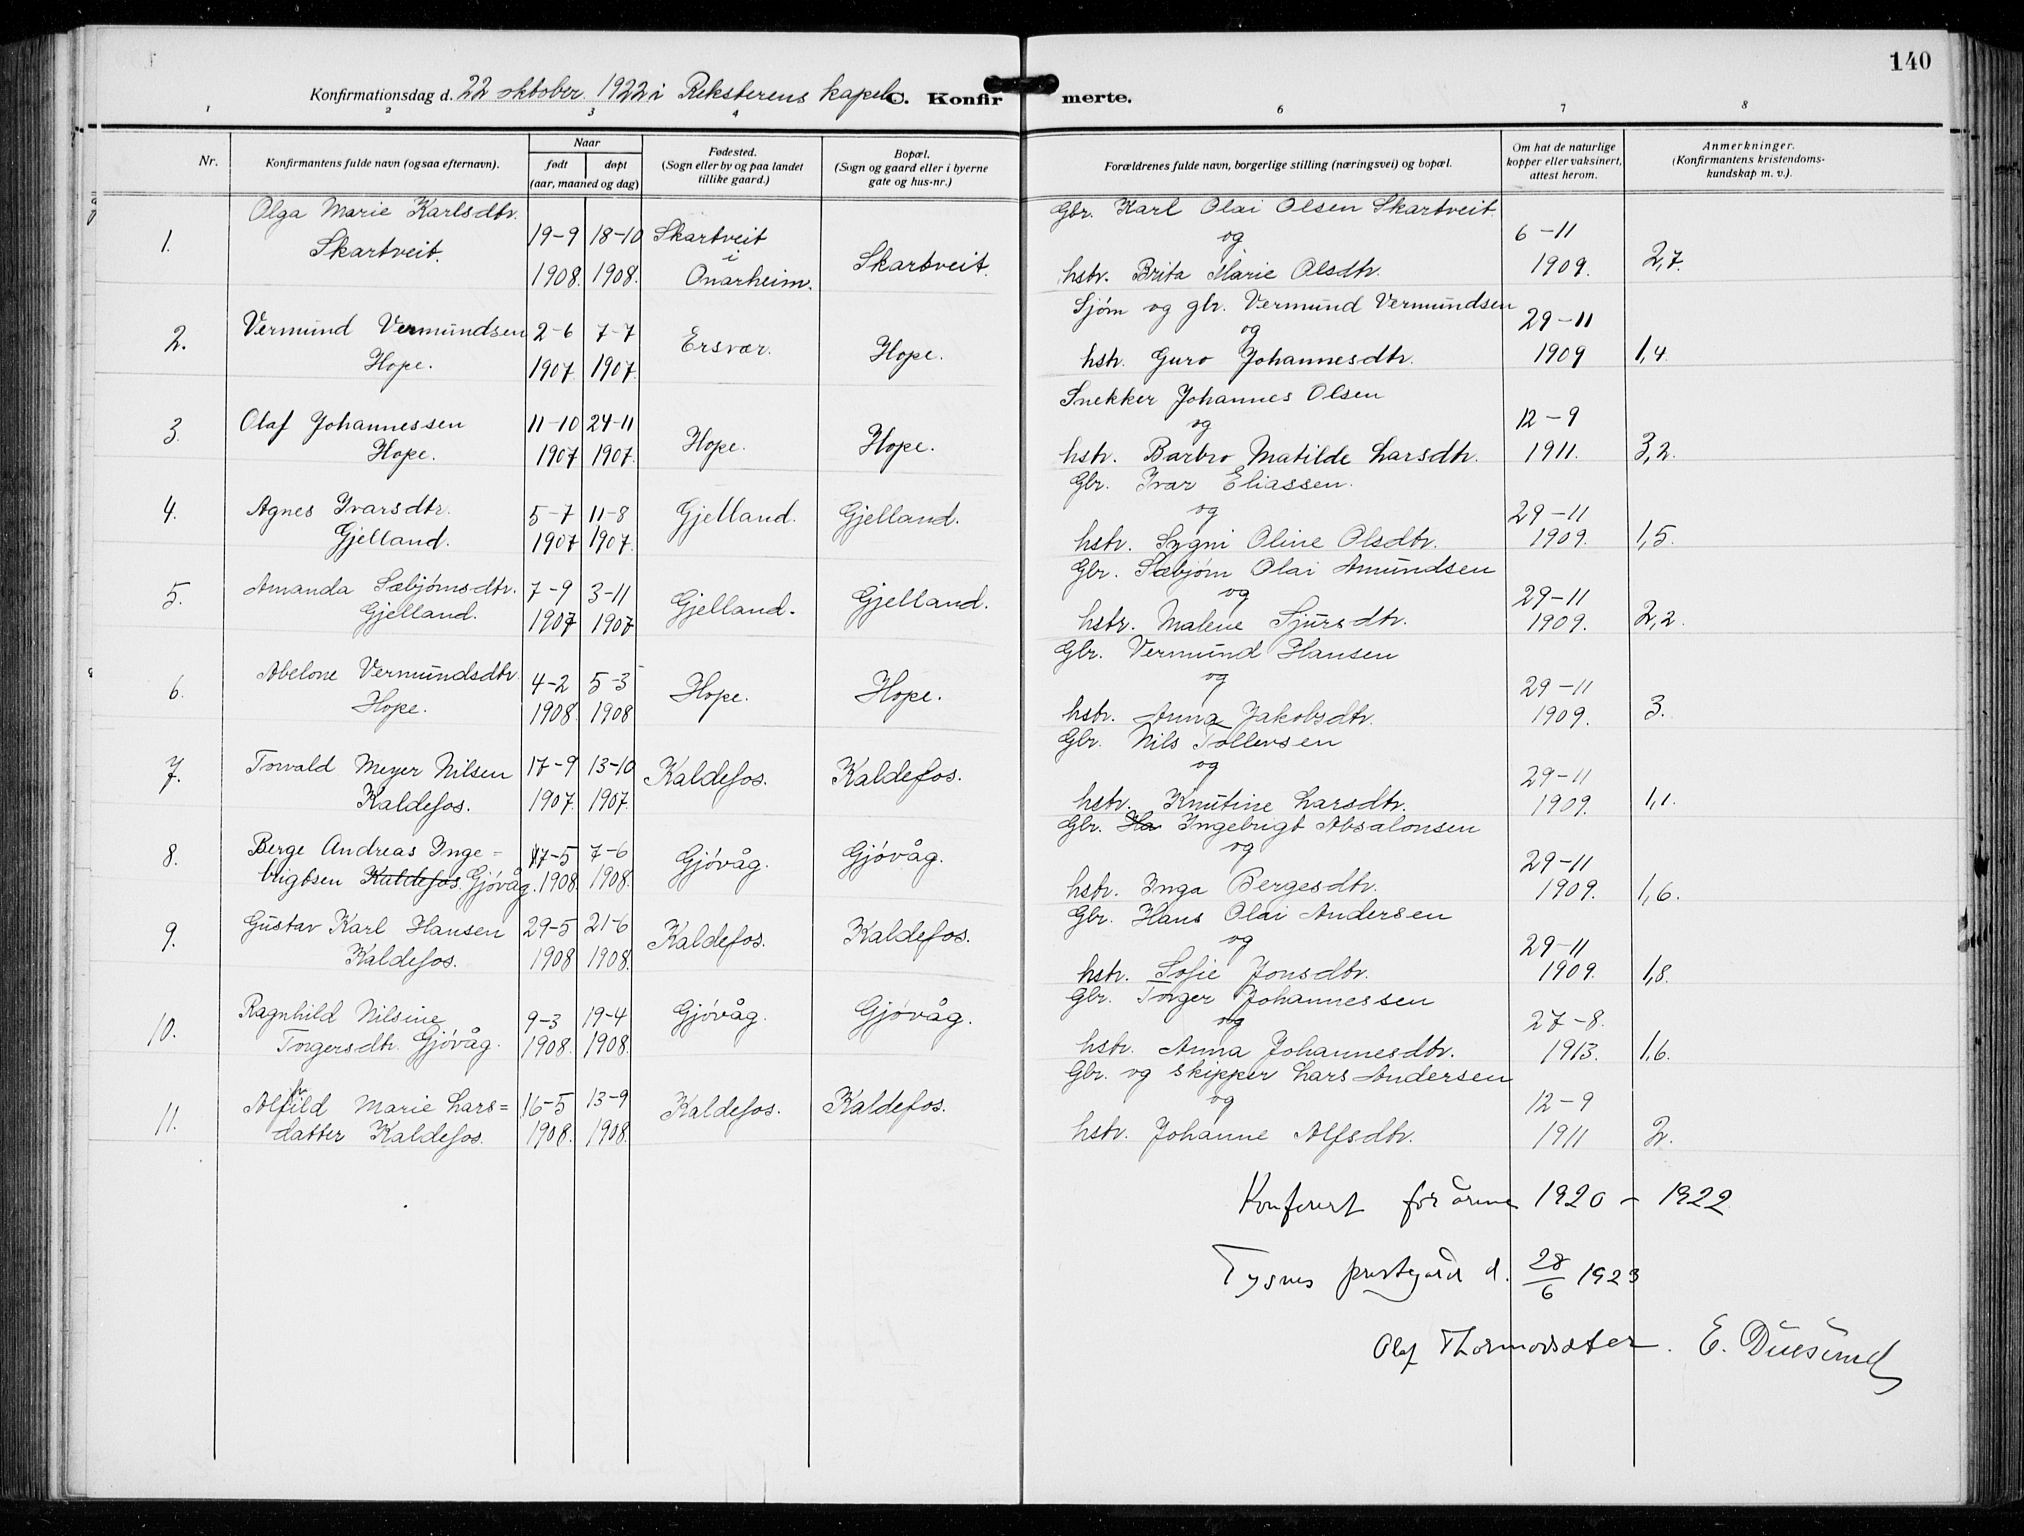 140
Konfirmationsdag d. 22 oktober 1922 i Reksterens kapel. C. Konfirmerte.
1 2 3 4 6 7 8
Nr. Konfirmantens fulde navn (ogsaa efternavn). Naar født døpt (aar, maaned og dag) Fødested. (Sogn eller by og paa landet tillike gaard.) Bopæl. (Sogn og gaard eller i byerne gate og hus-nr.) Forældrenes fulde navn, borgerlige stilling (næringsvei) og bopæl. Om hat de naturlige kopper eller vaksinert, attest herom. Anmerkninger. (Konfirmantens kristendomskundskap m. v.).
Olga Marie Karlsdtr. Gbr. Karl Olai Olsen Skartveit
1. Skartveit. 19-9 18-10 Skartveit i Skartveit. og 6-11
1908. 1908. Onarheim. hstr. Brita Marie Olsdtr. 1909. 2,7.
Vermund Vermundsen 2-6 7-7 Sjøm og gbr. Vermund Vermundsen 29-11
2. Hope. 1907. 1907. Ersvær. Hope. og hstr. Guro Johannesdtr. 1909 1,4.
Olaf Johannessen 11-10 24-11 Snekker Johannes Olsen 12-9
3. Hope. 1907 1907. Hope. Hope. og hstr. Barbro Matilde Larsdtr. 1911. 3,2.
4. Agnes Ivarsdtr. 5-7 11-8 Gjelland. Gjelland. Gbr. Ivar Eliassen. og 29-11
Gjelland. 1907 1907. hstr. Sygni Oline Olsdtr. 1909. 1,5.
5. Amanda Sæbjørnsdtr. 7-9 3-11 Gjelland. Gjelland. Gbr. Sæbjørn Olai Amundsen og 29-11
Gjelland. 1907 1907 hstr. Malene Sjursdtr. 1909. 2,2.
6. Abelone Vermundsdtr. 4-2 5-3 Hope. Hope. Gbr. Vermund Hansen og 29-11
Hope. 1908. 1908 hstr. Anna Jakobsdtr. 1909. 3.
7. Torvald Meyer Nilsen 17-9 13-10 Kaldefos. Kaldefos. Gbr. Nils Tollevsen og 29-11
Kaldefos. 1907. 1907. hstr. Knutine Larsdtr. 1909. 1,1.
8. Berge Andreas Inge- 17-5 7-6 Gjøvåg. Gjøvåg. Gbr. Ha Ingebrigt Absalonsen og 29-11
brigtsen Kaldefos. Gjøvåg. 1908. 1908. hstr. Inga Bergesdtr. 1909. 1,6.
9. Gustav Karl Hansen 29-5 21-6 Kaldefos. Kaldefos. Gbr. Hans Olai Andersen og 29-11
Kaldefos. 1908 1908. hstr. Sofie Jonsdtr. 1909. 1,8.
10. Ragnhild Nilsine 9-3 19-4 Gjøvåg. Gjøvåg. Gbr. Torger Johannessen og 27-8.
Torgersdtr. Gjøvåg. 1908. 1908. hstr. Anna Johannesdtr. 1913. 1,6.
11. Alfhild Marie Lars= 16-5 13-9 Kaldefos. Kaldefos. Gbr. og skipper Lars Andersen og 12-9
datter Kaldefos. 1908. 1908. hstr. Johanne Alfsdtr. 1911 2.
Konferert for årene 1920 - 1922
Tysnes prestegård d. 28/6 1923
Olaf Thormodsæter. E. Duesund